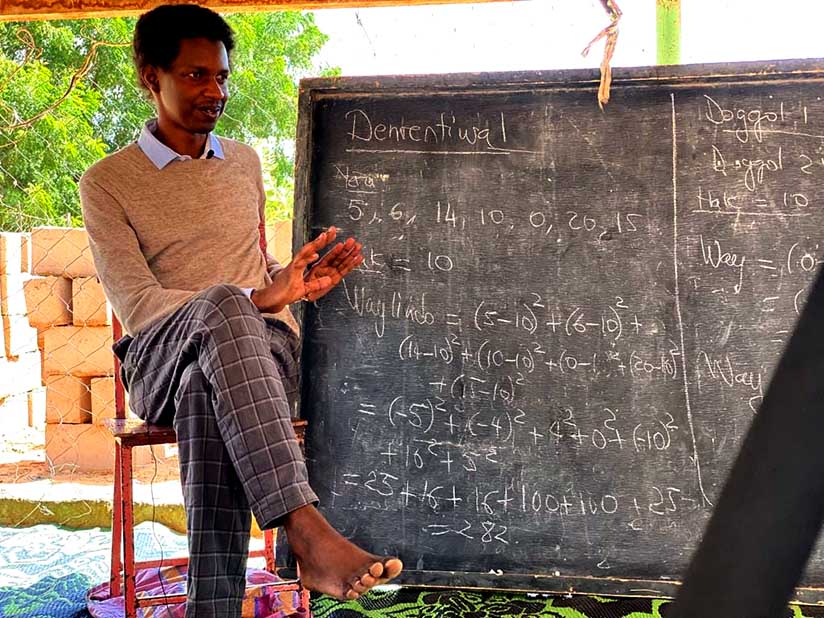 Dententiwal
5, 6, 14, 10, 0, 20, 15
= 10
Waylindo = (5-10)² + (6-10)² +
(14-10)² + (10-10)² + (0- )² + (20-10)²
+ (15-10)²
= (-5)² + (-4)² + 4² + 0² + (-10)²
+ 10² + 5²
= 25 + 16 + 16 + 100 + 100 + 25
= 282
Doggol 1
Doggol 2
= 10
Way = (0-
= (
Way